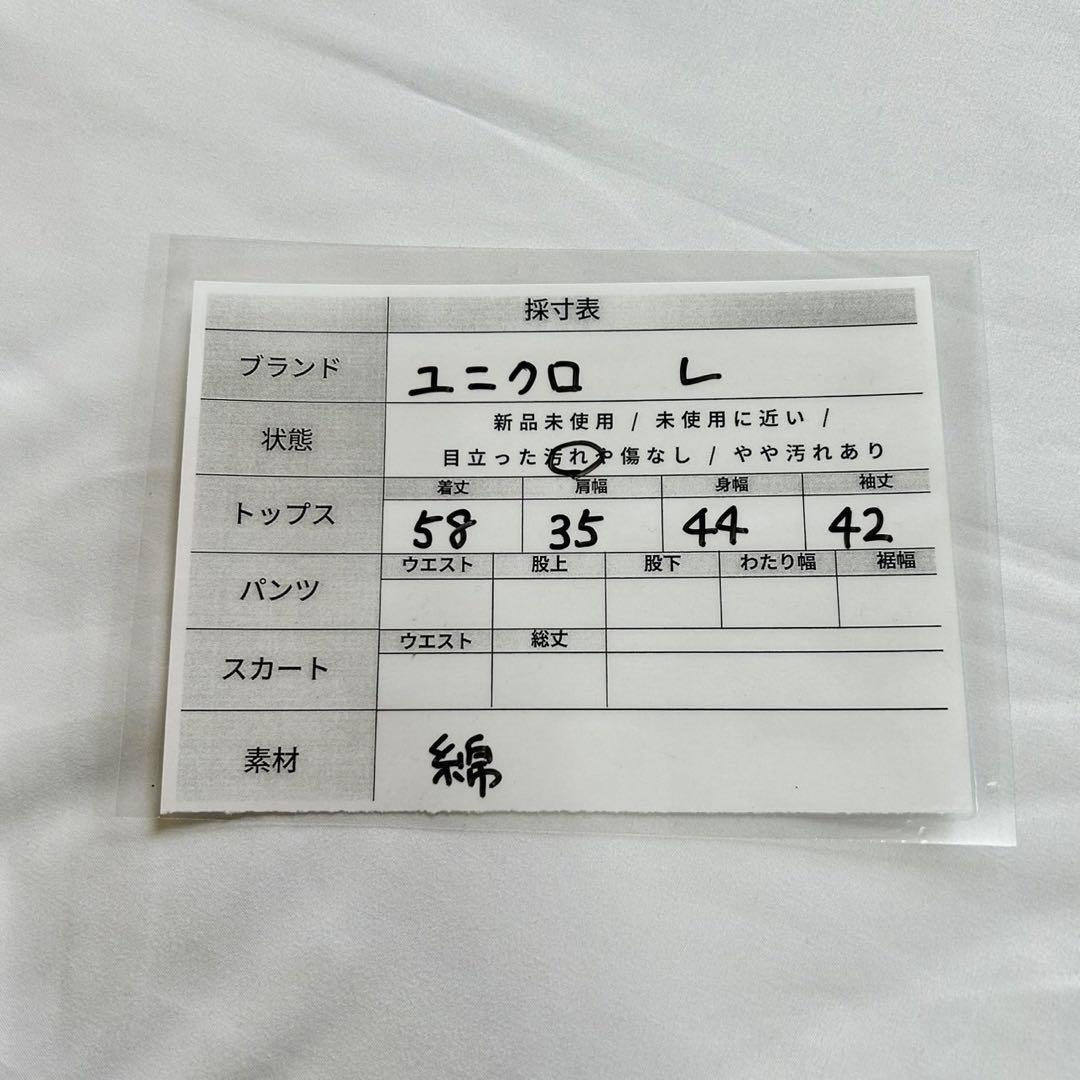 採寸表
ブランド ユニクロ L
状態 新品未使用 / 未使用に近い /
目立った汚れや傷なし / やや汚れあり
着丈 肩幅 身幅 袖丈
トップス 58 35 44 42
ウエスト 股上 股下 わたり幅 裾幅
パンツ
ウエスト 総丈
スカート
素材 綿